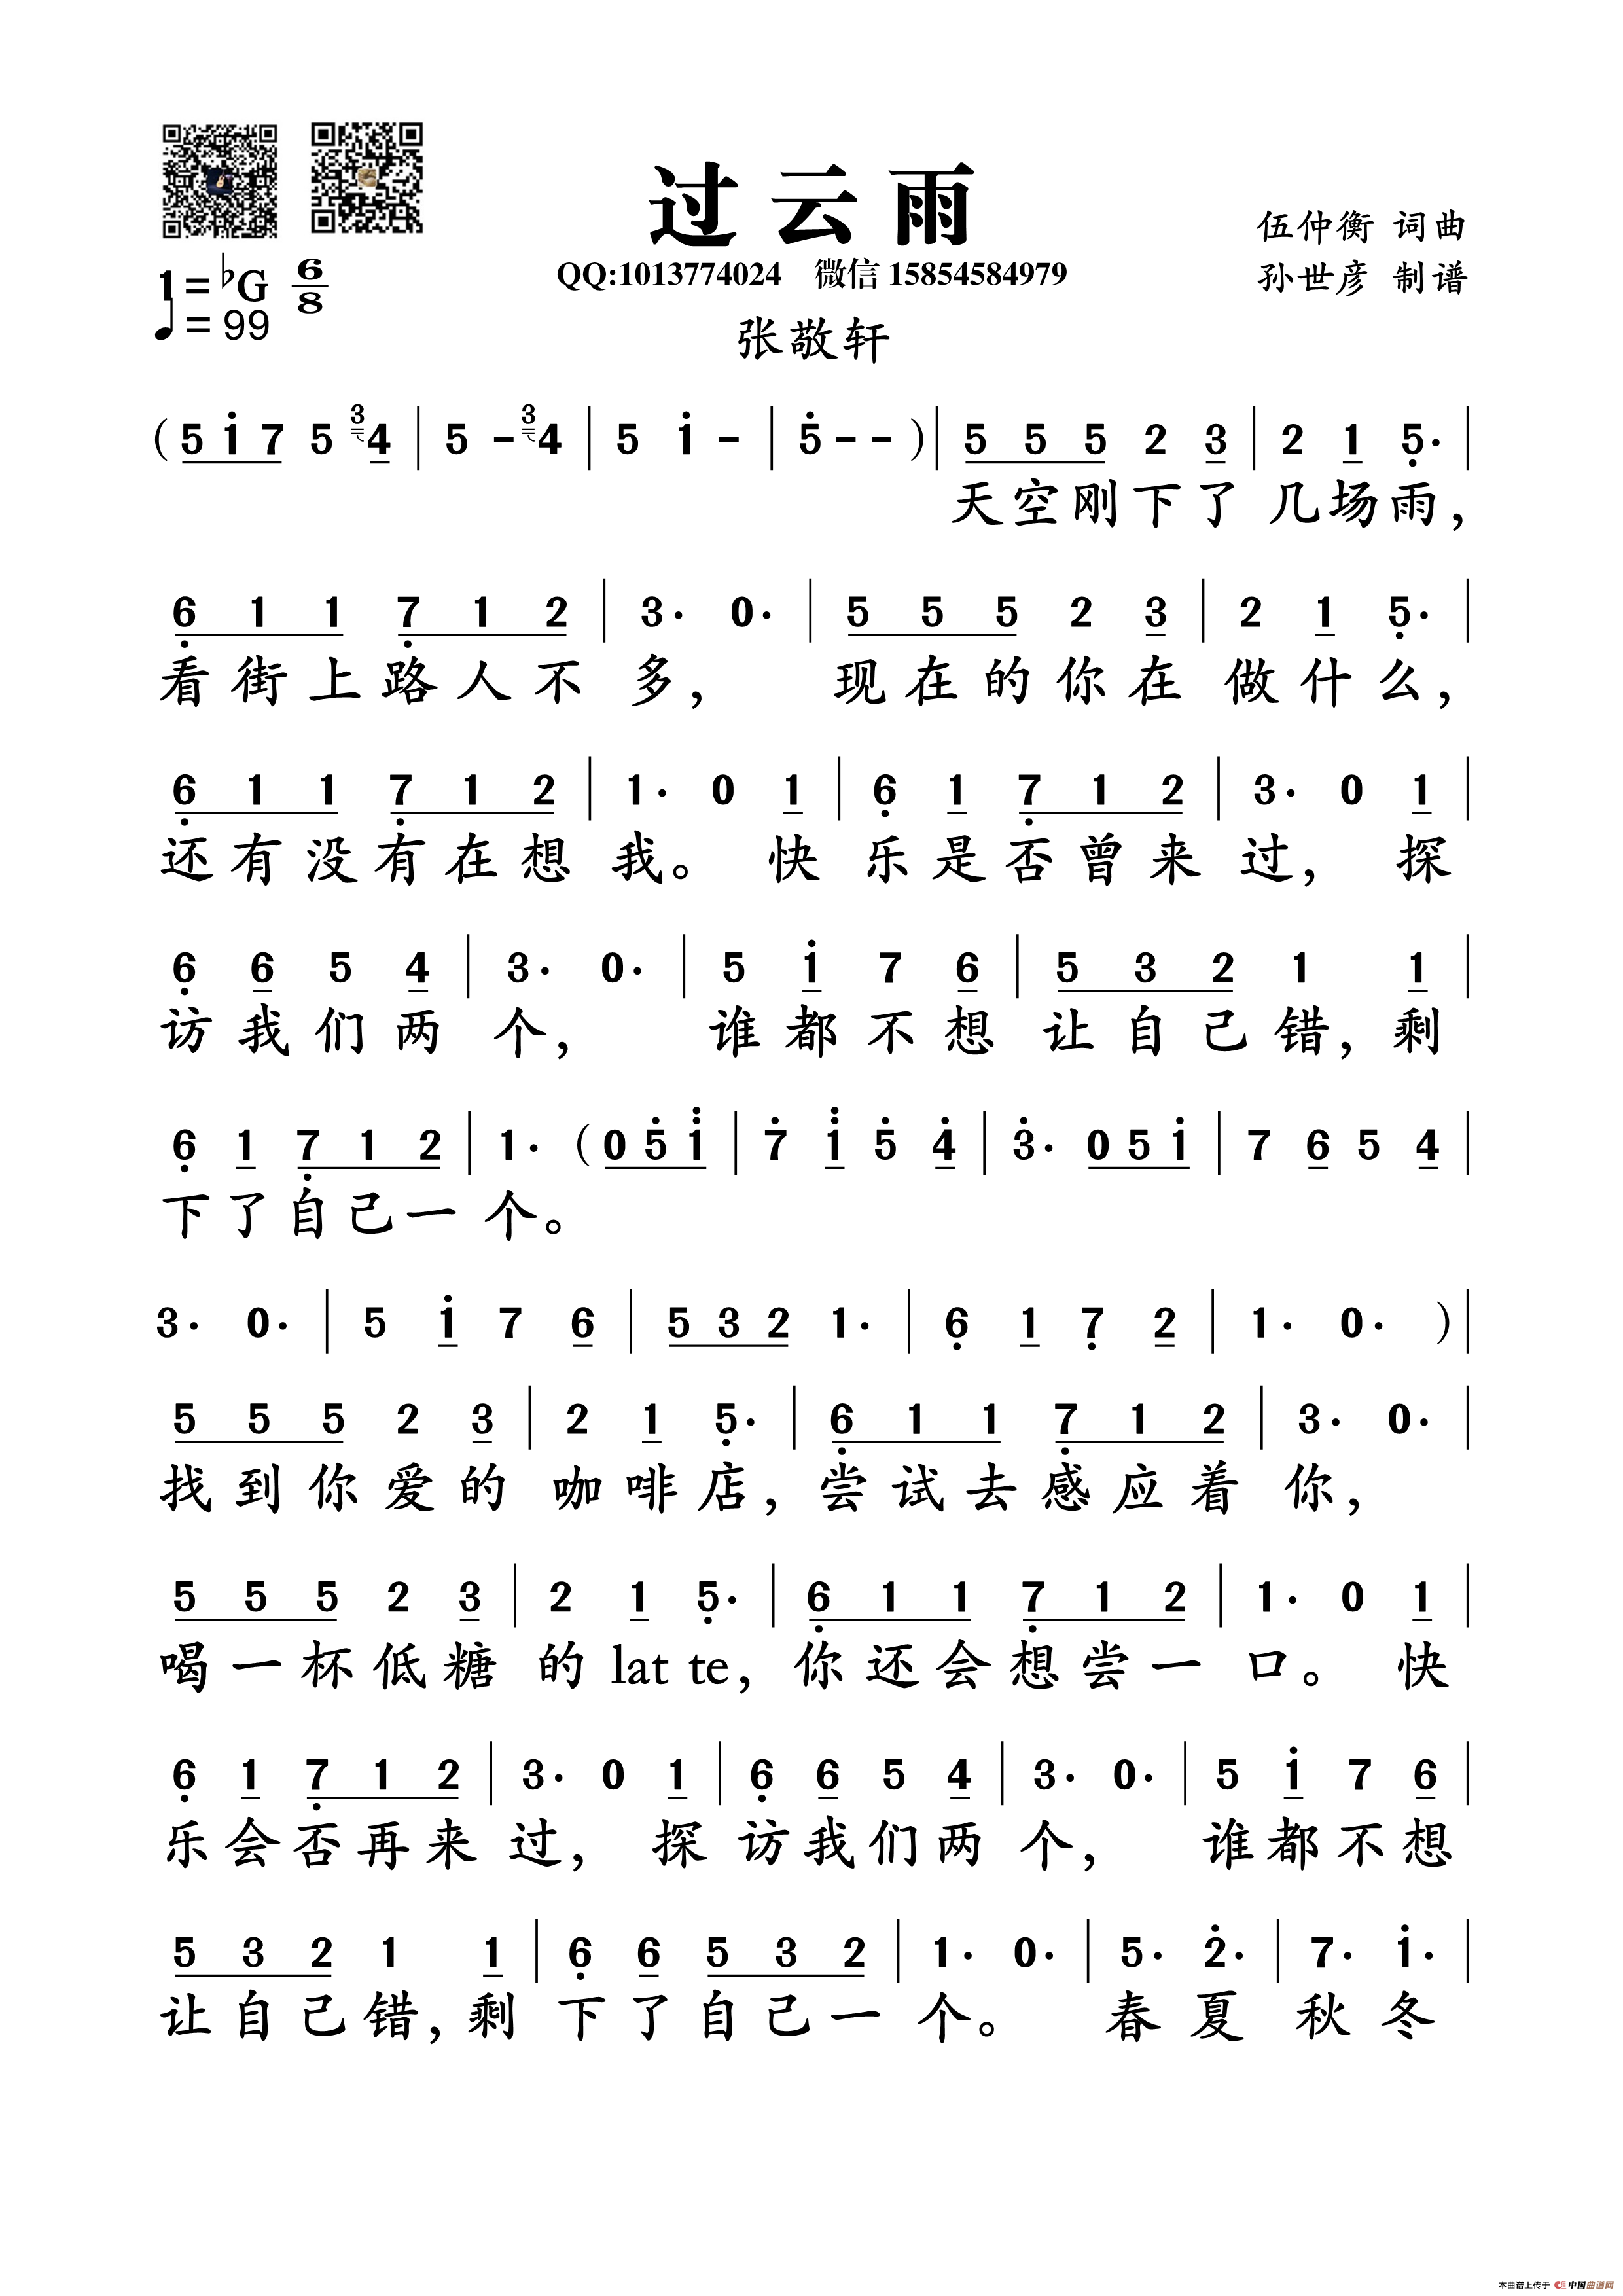 过云雨
伍仲衡 词曲
QQ:1013774024 微信 15854584979
孙世彦 制谱
1=♭G 6/8
♩=99
张敬轩
( 5 i 7 5 3 4 | 5 - 3 4 | 5 i - | 5̇ - - ) | 5 5 5 2 3 | 2 1 5̣· |
天空刚下了 几场雨,
6̣ 1 1 7̣ 1 2 | 3· 0· | 5 5 5 2 3 | 2 1 5̣· |
看街上路人不 多, 现在的你在 做什么,
6̣ 1 1 7̣ 1 2 | 1· 0 1 | 6̣ 1 7̣ 1 2 | 3· 0 1 |
还有没有在想 我。 快 乐是否曾来 过, 探
6̣ 6 5 4 | 3· 0· | 5 i 7 6 | 5 3 2 1 1 |
访我们两 个, 谁都不想 让自己错, 剩
6̣ 1 7̣ 1 2 | 1· ( 0 5̇ 1̈ | 7̇ 1̈ 5̇ 4̇ | 3̇· 0 5 i | 7 6 5 4 |
下了自己一 个。
3· 0· | 5 i 7 6 | 5 3 2 1· | 6̣ 1 7̣ 2 | 1· 0· ) |
5 5 5 2 3 | 2 1 5̣· | 6̣ 1 1 7̣ 1 2 | 3· 0· |
找到你爱的 咖啡店, 尝试去感应着 你,
5 5 5 2 3 | 2 1 5̣· | 6̣ 1 1 7̣ 1 2 | 1· 0 1 |
喝一杯低糖 的 lat te, 你还会想尝一 口。 快
6̣ 1 7̣ 1 2 | 3· 0 1 | 6̣ 6 5 4 | 3· 0· | 5 i 7 6 |
乐会否再来 过, 探 访我们两 个, 谁都不想
5 3 2 1 1 | 6̣ 6 5 3 2 | 1· 0· | 5· 2̇· | 7· i· |
让自己错, 剩 下了自己一 个。 春 夏 秋 冬
本曲谱上传于 中国曲谱网